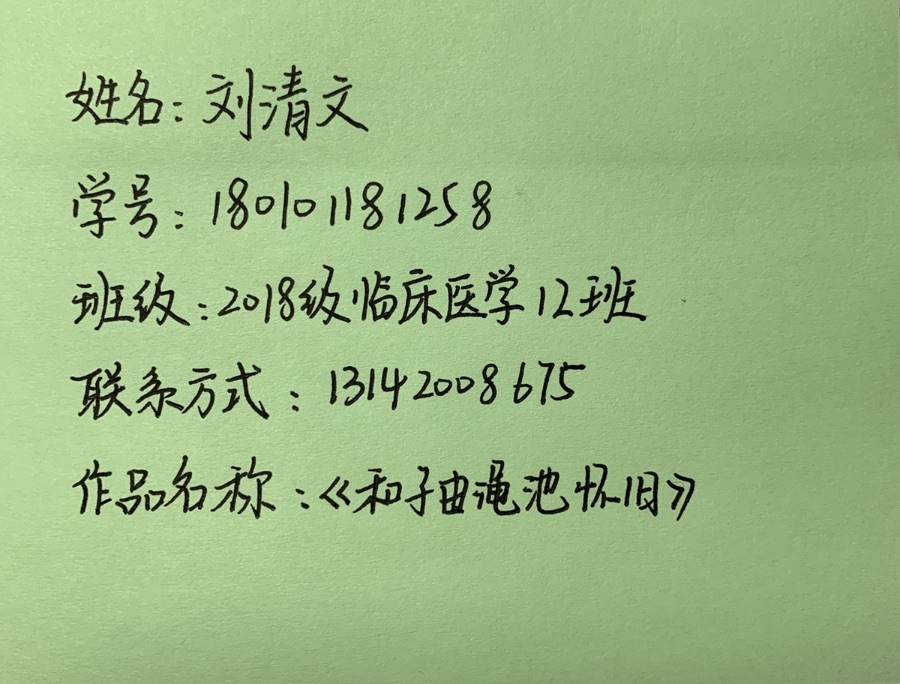 姓名：刘清文
学号：180101181258
班级：2018级临床医学12班
联系方式：13142008675
作品名称：《和子由渑池怀旧》